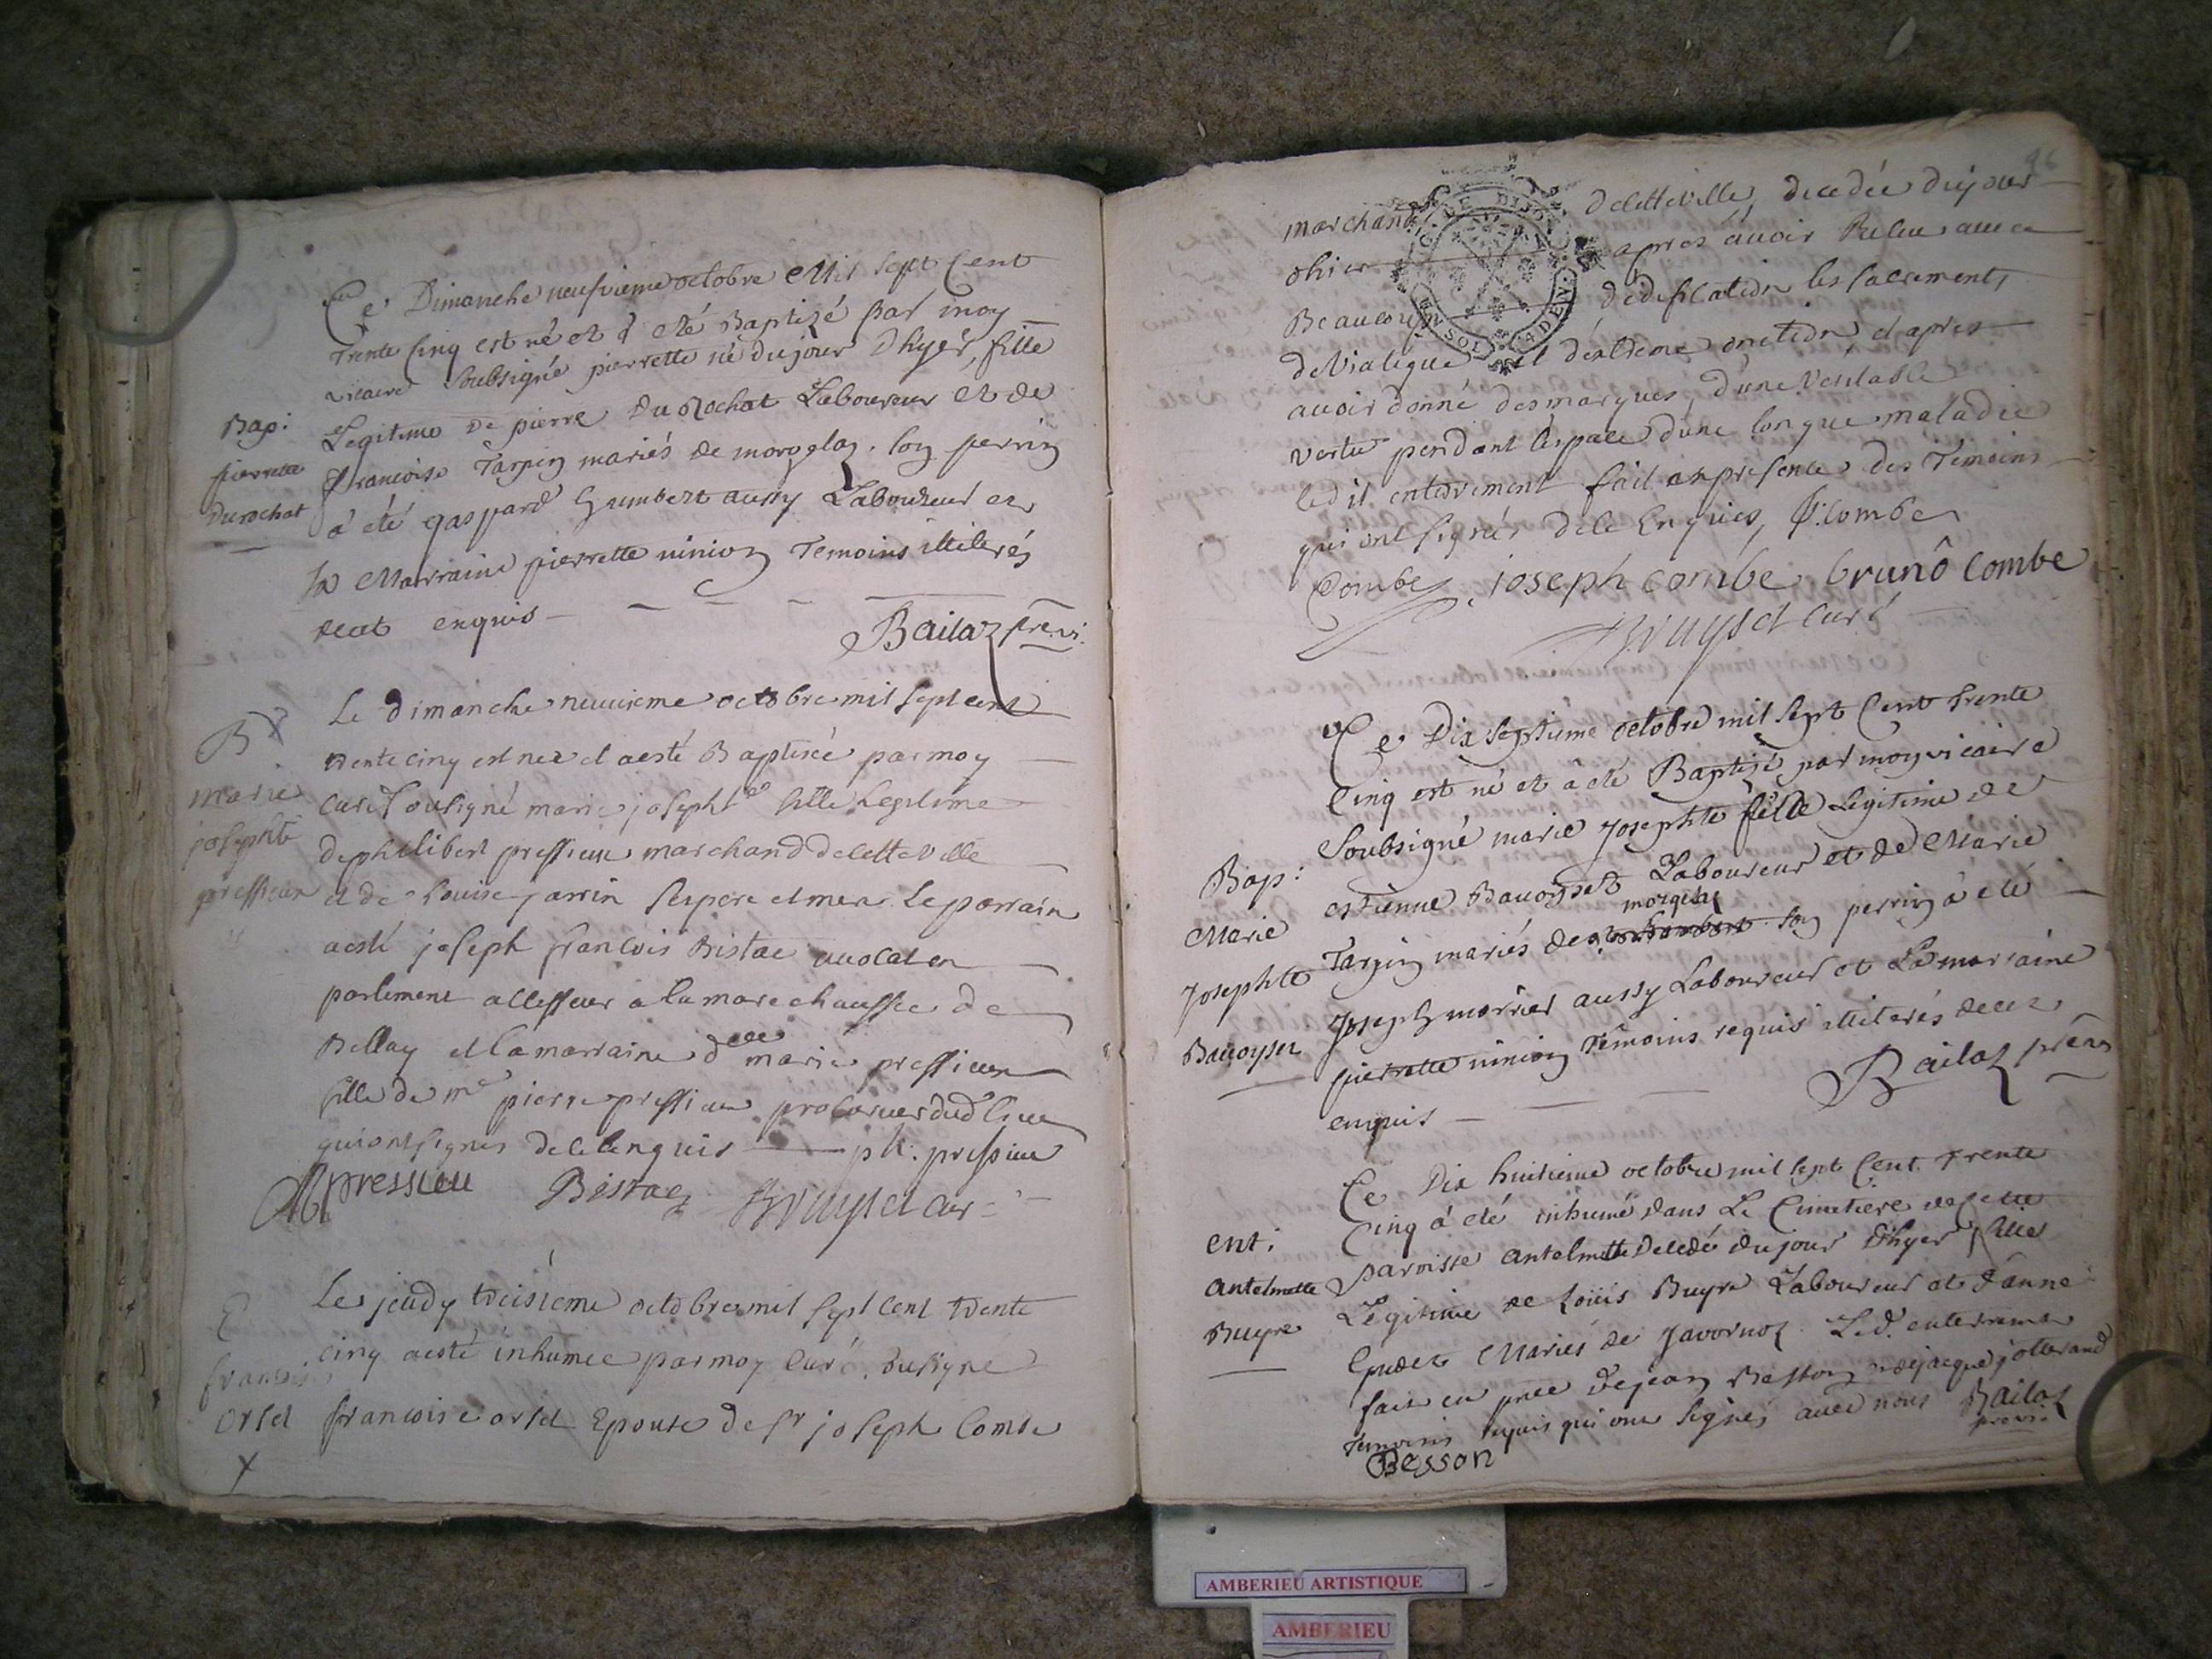 Ce Dimanche neufvieme octobre Mil sept Cent
Trente Cinq est né et a eté Baptizé par moy
vicaire soubsigné pierrette né du jour D'hyer, fille
Legitime De pierre Du Rochat Laboureur et de
francoise Tarpin mariés de morgelas. son perrin
a eté gaspard humbert aussy Laboureur et
La Marraine pierrette ninion Temoins illiterés
de ce enquis
Bailaz pre. vi.
Bap:
pierrette
Durochat
Le dimanche neuuieme octobre mil sept cent
trente cinq est nee et a esté Baptisée par moy
curé sousigné marie josephte fille legitime
de philibert pressieux marchand de cette ville
et de louise jarrin ses pere et mere. Le parrain
a esté joseph francois Bistac auocat en
parlement assesseur a la marechaussée de
Bellay et la marraine dlle marie pressieux
fille de me pierre pressieux procureur dud lieu
qui ont signés de ce enquis ph: pressieu
M pressieu Bistac Bruyset curé
B
marie
josephte
pressieux
Le jeudy treisiéme octobre mil sept cent trente
cinq a esté inhumee par moy curé sousigne
francoise orset Epouse de sr joseph Combe
E
francoise
orset
X
96
marchand de cette ville, decedée du jour
d'hier apres auoir Receu auec
Beaucoup d'edification les sacrements
de Viatique et d'extreme onction, et apres
auoir donné des marques d'une veritable
vertu pendant l'espace d'une longue maladie
led it. enterrement fait en presence des Temoins
qui ont signés de ce Enquies, Combe
Combe joseph combe brunô combe
Bruyset curé
Ce Dix septiéme octobre mil sept Cent trente
Cinq est né et a eté Baptizé par moy vicaire
Soubsigné marie Josephte fille Legitime de
estienne Bauoyset Laboureur et de Marie
morgelas
Tarpin mariés de son perrin a eté
Joseph morrier aussy Laboureur et La marraine
pierrette ninion Témoins requis illiterés de ce
enquis
Bailaz prê vi
Bap:
Marie
Josephte
Bauoyset
Ce Dix huitieme octobre mil sept Cent trente
Cinq à eté inhumé dans Le Cimetiere de Cette
paroisse antelmette Decedé du jour d'hyer fille
Legitime de Loüis Buyre Laboureur et d'anne
Mariés de Javornoz. Led. enterrement
fait en pnce de jean Besson et de jacque jotterand
Temoins requis qui ont signés auec nous Bailaz
pre vi.
Besson
ent:
antelmette
Buyre
DE DIJON
AMBERIEU ARTISTIQUE
AMBERIEU